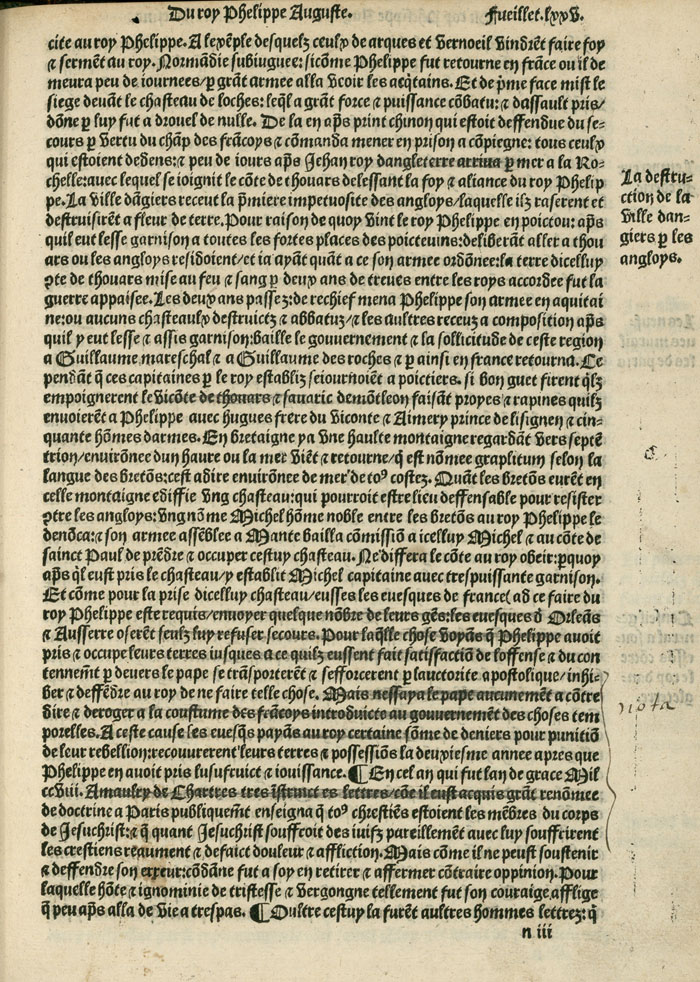 Du roy Phelippe Auguste. Fueillet.lxxv.
cite au roy Phelippe. A lexẽple desquelz ceulx de arques et Vernoeil vindrẽt faire foy
⁊ sermẽt au roy. Normãdie subiuguee: sicõme Phelippe fut retourne en frãce ou il de
meura peu de iournees/ꝑ grãt armee alla veoir les acq̃tains. Et de p̃me face mist le
siege deuãt le chasteau de loches: leq̃l a grãt force ⁊ puissance cõbatu: ⁊ dassault pris/
dõne ꝑ luy fut a drouel de nulle. De la en ap̃s print chinon qui estoit deffendue du se=
cours ꝑ vertu du chãp des frãcoys ⁊ cõmanda mener en prison a cõpiegne: tous ceulx
qui estoient dedens: ⁊ peu de iours ap̃s Jehan roy dangleterre arriua ꝑ mer a la Ro=
chelle: auec lequel se ioignit le cõte de thouars delessant la foy ⁊ aliance du roy Phelip
pe. La ville dãgiers receut la p̃miere impetuosite des angloys/laquelle ilz raserent et
destruisirẽt a fleur de terre. Pour raison de quoy vint le roy Phelippe en poictou: ap̃s
quil eut lesse garnison a toutes les fortes places des poicteuins: deliberãt aller a thou
ars ou les angloys residoient/et ia ayãt quãt a ce son armee ordõnee: la terre dicelluy
ꝯte de thouars mise au feu ⁊ sang ꝑ deux ans de treues entre les roys accordee fut la
guerre appaisee. Les deux ans passez: de rechief mena Phelippe son armee en aquitai
ne: ou aucuns chasteaulx destruictz ⁊ abbatuz/⁊ les aultres receuz a composition ap̃s
quil y eut lesse ⁊ assis garnison: baille le gouuernement ⁊ la sollicitude de ceste region
a Guillaume mareschal ⁊ a Guillaume des roches ⁊ ꝑ ainsi en france retourna. Ce
pendãt q̃ ces capitaines ꝑ le roy establiz seiournoiẽt a poictiers. si bon guet firent q̃lz
empoignerent le vicõte de thouars ⁊ sauaric demõtleon faisãt proyes ⁊ rapines quilz
enuoierẽt a Phelippe auec hugues frere du viconte ⁊ Aimery prince de lisignen ⁊ cin=
quante hõmes darmes. En bretaigne ya vne haulte montaigne regardãt vers septẽ
trion/enuirõnee dun haure ou la mer viẽt ⁊ retourne/q̃ est nõmee graplitum selon la
langue des bretõs: cest adire enuirõnee de mer de toꝰ costez. Quãt les bretõs eurẽt en
celle montaigne ediffie vng chasteau: qui pourroit estre lieu deffensable pour resister
ꝯtre les angloys: vng nõme Michel hõme noble entre les bretõs au roy Phelippe le
denõca: ⁊ son armee assẽblee a Mante bailla cõmissiõ a icelluy Michel ⁊ au cõte de
sainct Paul de prẽdre ⁊ occuper cestuy chasteau. Ne differa le cõte au roy obeir: ꝑquoy
ap̃s q̃l eust pris le chasteau/y establit Michel capitaine auec trespuissante garnison.
Et cõme pour la prise dicelluy chasteau/eusses les euesques de france( ad ce faire du
roy Phelippe este requis/enuoyer quelque nõbre de leurs gẽs: les euesques d̃ Orleãs
⁊ Ausserre oserẽt seulz luy refuser secours. Pour laq̃lle chose voyãs q̃ Phelippe auoit
pris ⁊ occupe leurs terres iusques a ce quilz eussent fait satisfactiõ de loffense ⁊ du con
tennem̃t ꝑ deuers le pape se trãsporterẽt ⁊ sefforcerent ꝑ lauctorite apostolique/inhi=
ber ⁊ deffẽdre au roy de ne faire telle chose. Mais nessaya le pape aucunemẽt a cõtre
dire ⁊ deroger a la coustume des frãcoys introduicte au gouuernemẽt des choses tem
porelles. A ceste cause les euesq̃s payãs au roy certaine sõme de deniers pour punitiõ
de leur rebellion: recouurerent leurs terres ⁊ possessiõs la deuxiesme annee apres que
Phelippe en auoit pris lusufruict ⁊ iouissance. ¶ En cel an qui fut lan de grace Mil
ccviii. Amaulry de Chartres tres ĩstruct es lettres/cõe il eust acquis grãt renõmee
de doctrine a Paris publiquem̃t enseigna q̃ toꝰ chrestiẽs estoient les mẽbres du corps
de Jesuchrist: ⁊ q̃ quant Jesuchrist souffroit des iuifz pareillemẽt auec luy souffrirent
les crestiens reaument ⁊ de faict douleur ⁊ affliction. Mais cõme il ne peust soustenir
⁊ deffendre son erreur: cõdãne fut a soy en retirer ⁊ affermer cõtraire oppinion. Pour
laquelle hõte ⁊ ignominie de tristesse ⁊ vergongne tellement fut son couraige afflige
q̃ peu ap̃s alla de vie a trespas. ¶ Oultre cestuy la furẽt aultres hommes lettrez: q̃
n iii
La destru=
ction de la
ville dan=
giers ꝑ les
angloys.
nota